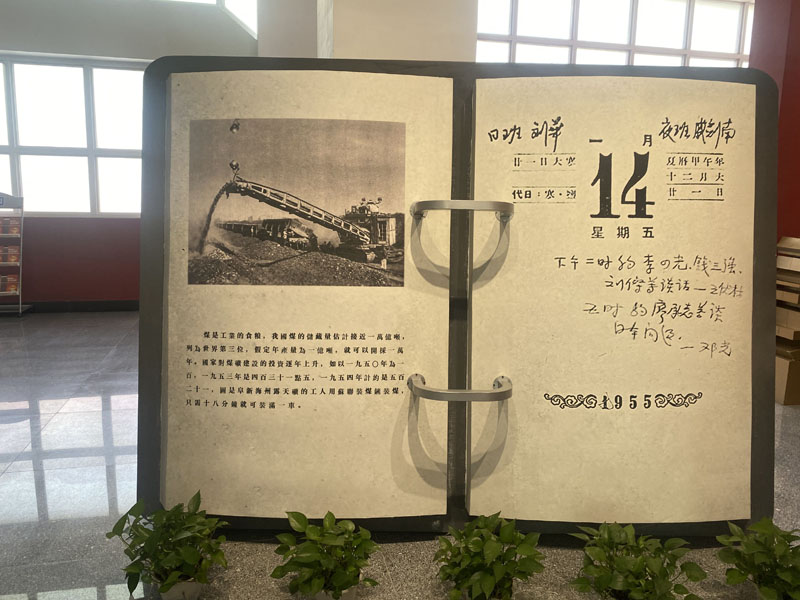 煤是工業的食糧，我國煤的儲藏量估計接近一萬億噸，
列為世界第三位，假定年產量為一億噸，就可以開採一萬
年。國家對煤礦建設的投資逐年上升，如以一九五〇年為一
百，一九五三年是四百三十一點五，一九五四年計約是五百
二十一，圖是阜新海州露天礦的工人用蘇聯裝煤鏟裝煤，
只需十八分鐘就可裝滿一車。
日班 刘华
一月
夜班
廿一日大寒
14
夏曆甲午年
十二月大
代日：寒·
廿一日
星期五
下午二时约李四光、钱三强、
刘傑等谈话
五时约廖承志等谈
日本问题
—邓光
1955